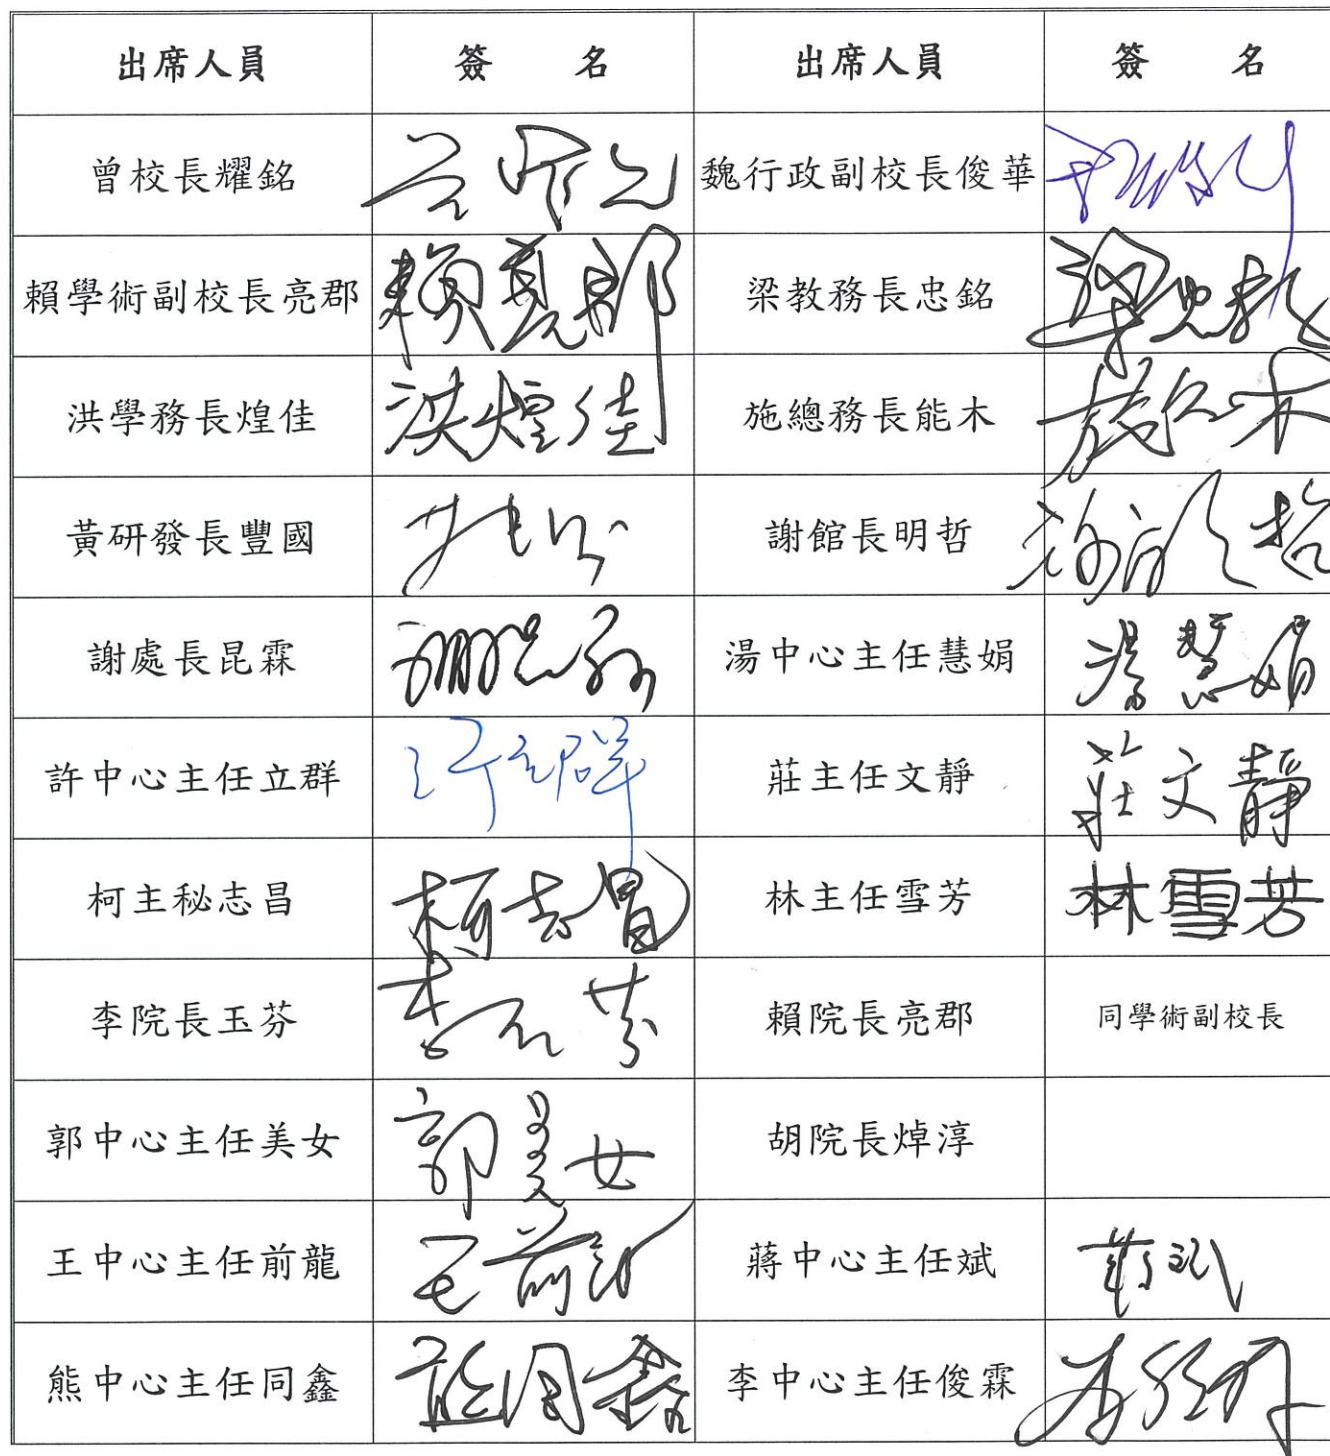 出席人員 簽 名 出席人員 簽 名
曾校長耀銘 魏行政副校長俊華
賴學術副校長亮郡 賴亮郡 梁教務長忠銘 梁忠銘
洪學務長煌佳 洪煌佳 施總務長能木 施能木
黃研發長豐國 謝館長明哲 謝明哲
謝處長昆霖 謝昆霖 湯中心主任慧娟 湯慧娟
許中心主任立群 許立群 莊主任文靜 莊文靜
柯主秘志昌 柯志昌 林主任雪芳 林雪芳
李院長玉芬 李玉芬 賴院長亮郡 同學術副校長
郭中心主任美女 郭美女 胡院長焯淳
王中心主任前龍 王前龍 蔣中心主任斌 蔣斌
熊中心主任同鑫 熊同鑫 李中心主任俊霖 李俊霖